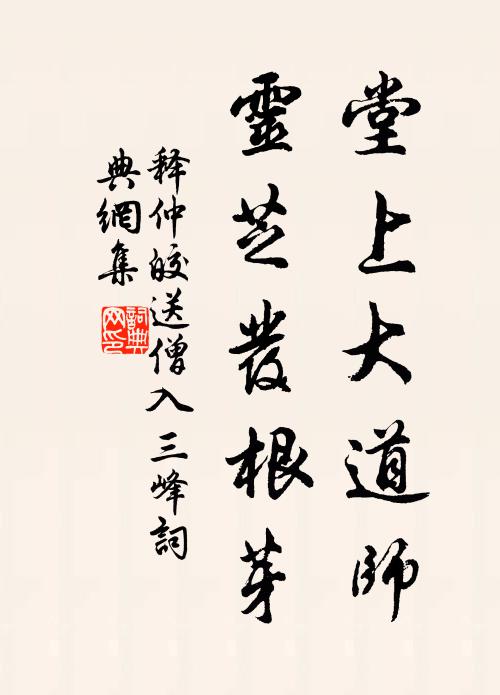 堂上大道師
靈芝發根芽
释仲皎送僧入三峰詞
典網集
詞典
网印